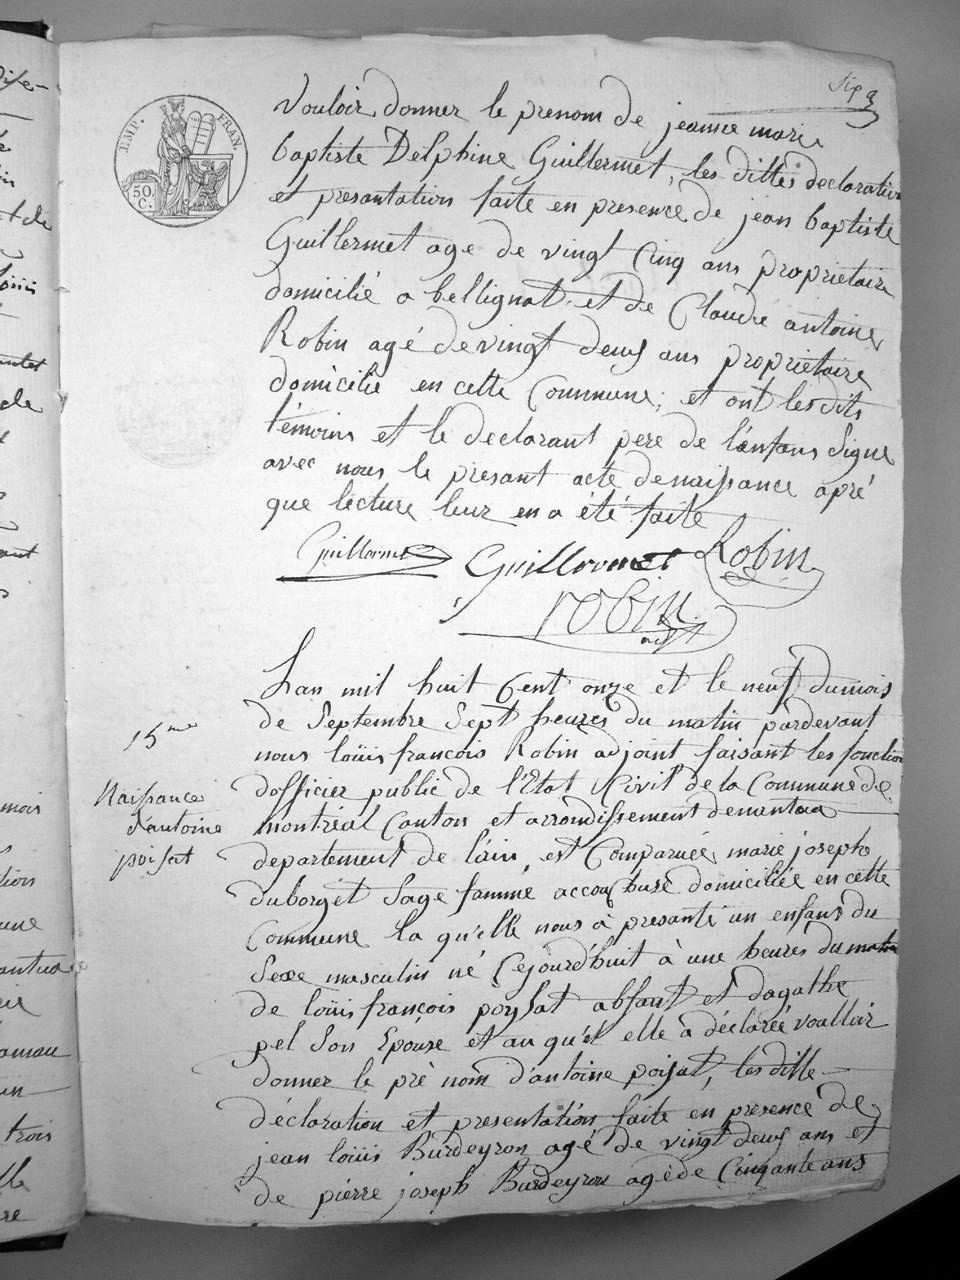 Six 9
EMP. FRAN.
50 C.
vouloir donner le prenom de jeanne marie
baptiste Delphine Guillermet, les dittes declaration
et presantation faite en presence de jean baptiste
Guillermet age de vingt cinq ans proprietaire
domicilié a bellignat et de Claude antoine
Robin agé de vingt deux ans proprietaire
domicilie en cette Commune; et ont les dits
témoins et le declarant pere de l'enfans Signe
avec nous le presant acte de naissance apré
que lecture leur en a été faite
Guillermet Guillermet Robin
robin
adjt
15me
Naissance
d'antoine
poisat
Lan mil huit Cent onze et le neuf du mois
de Septembre Sept heures du matin pardevant
nous loüis françois Robin adjoint faisant les fonction
dofficier public de l'Etat Civil de la Commune de
montréal Canton et arrondissement de nantua
departement de l'ain, est Comparuée marie josephe
duborget Sage famme accouchuse domiciliée en cette
Commune la qu'elle nous à presanté un enfans du
Sexe masculin né Cejourd'huit à une heures du matin
de loüis françois poysat absant et dagathe
pel Son Epouse et au qu'el elle à déclarée voulloir
donner le pré nom d'antoine poisat, les ditte
déclaration et presentation faite en presence de
jean loüis Burdeyron agé de vingt deux ans et
de pierre joseph Burdeyron agè de Cinqante ans